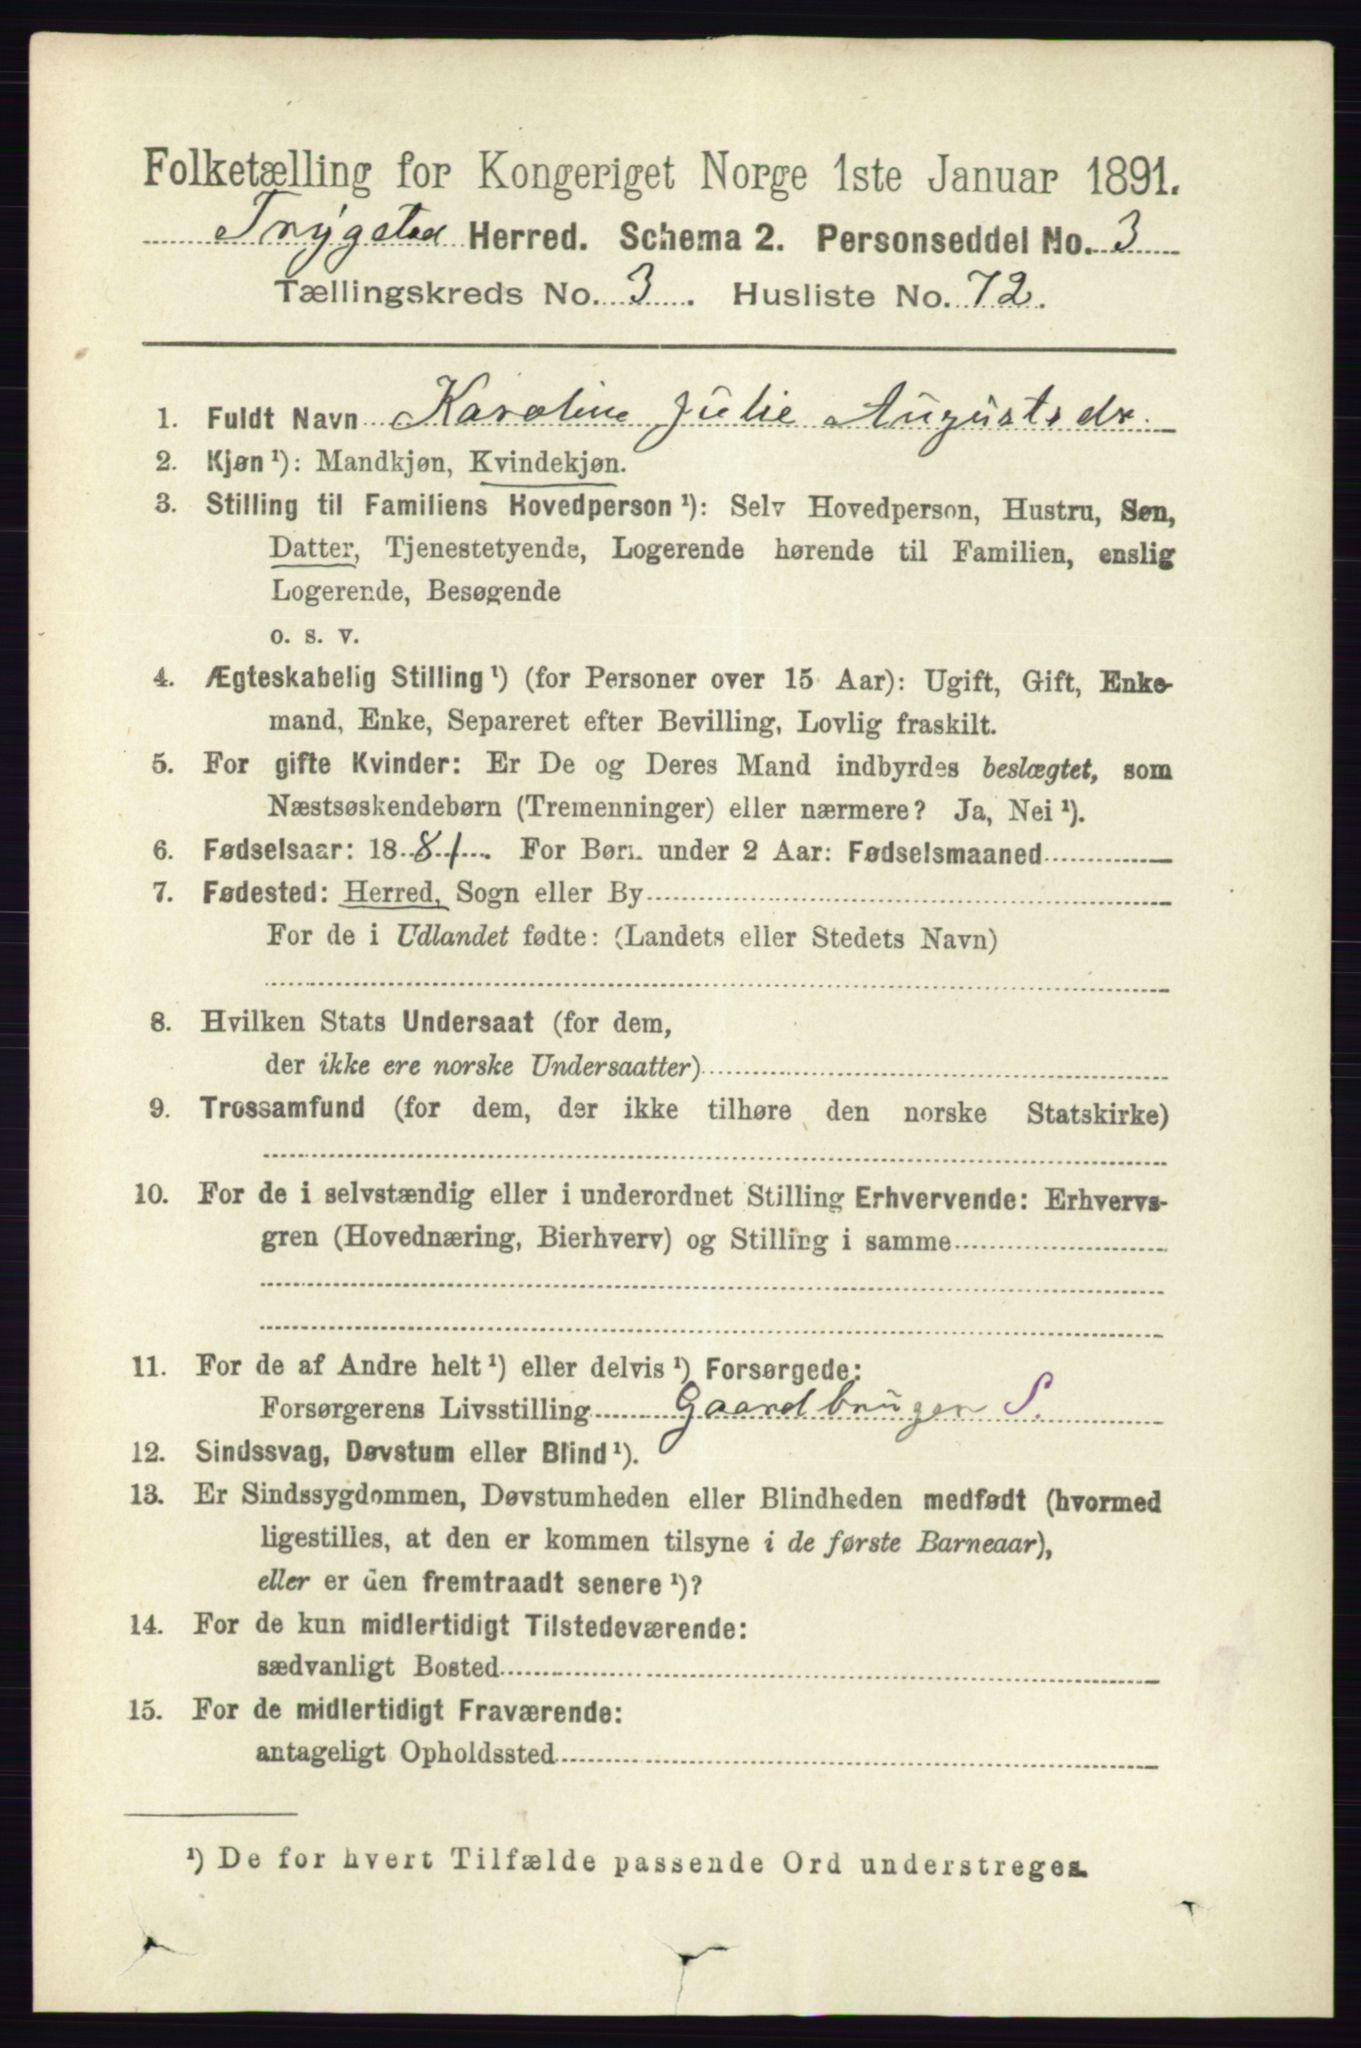 Folketælling for Kongeriget Norge 1ste Januar 1891.
Trygstad Herred. Schema 2. Personseddel No. 3
Tællingskreds No. 3. Husliste No. 72.
1. Fuldt Navn Karoline Julie Augustsdr.
2. Kjøn ¹): Mandkjøn, Kvindekjøn.
3. Stilling til Familiens Hovedperson ¹): Selv Hovedperson, Hustru, Søn,
Datter, Tjenestetyende, Logerende hørende til Familien, enslig
Logerende, Besøgende
o. s. v.
4. Ægteskabelig Stilling ¹) (for Personer over 15 Aar): Ugift, Gift, Enke-
mand, Enke, Separeret efter Bevilling, Lovlig fraskilt.
5. For gifte Kvinder: Er De og Deres Mand indbyrdes beslægtet, som
Næstsøskendebørn (Tremenninger) eller nærmere? Ja, Nei ¹).
6. Fødselsaar: 1881. For Børn under 2 Aar: Fødselsmaaned
7. Fødested: Herred, Sogn eller By
For de i Udlandet fødte: (Landets eller Stedets Navn)
8. Hvilken Stats Undersaat (for dem,
der ikke ere norske Undersaatter)
9. Trossamfund (for dem, der ikke tilhøre den norske Statskirke)
10. For de i selvstændig eller i underordnet Stilling Erhvervende: Erhvervs-
gren (Hovednæring, Bierhverv) og Stilling i samme
11. For de af Andre helt ¹) eller delvis ¹) Forsørgede:
Forsørgerens Livsstilling Gaardbruger S.
12. Sindssvag, Døvstum eller Blind ¹).
13. Er Sindssygdommen, Døvstumheden eller Blindheden medfødt (hvormed
ligestilles, at den er kommen tilsyne i de første Barneaar),
eller er den fremtraadt senere ¹)?
14. For de kun midlertidigt Tilstedeværende:
sædvanligt Bosted
15. For de midlertidigt Fraværende:
antageligt Opholdssted
¹) De for hvert Tilfælde passende Ord understreges.